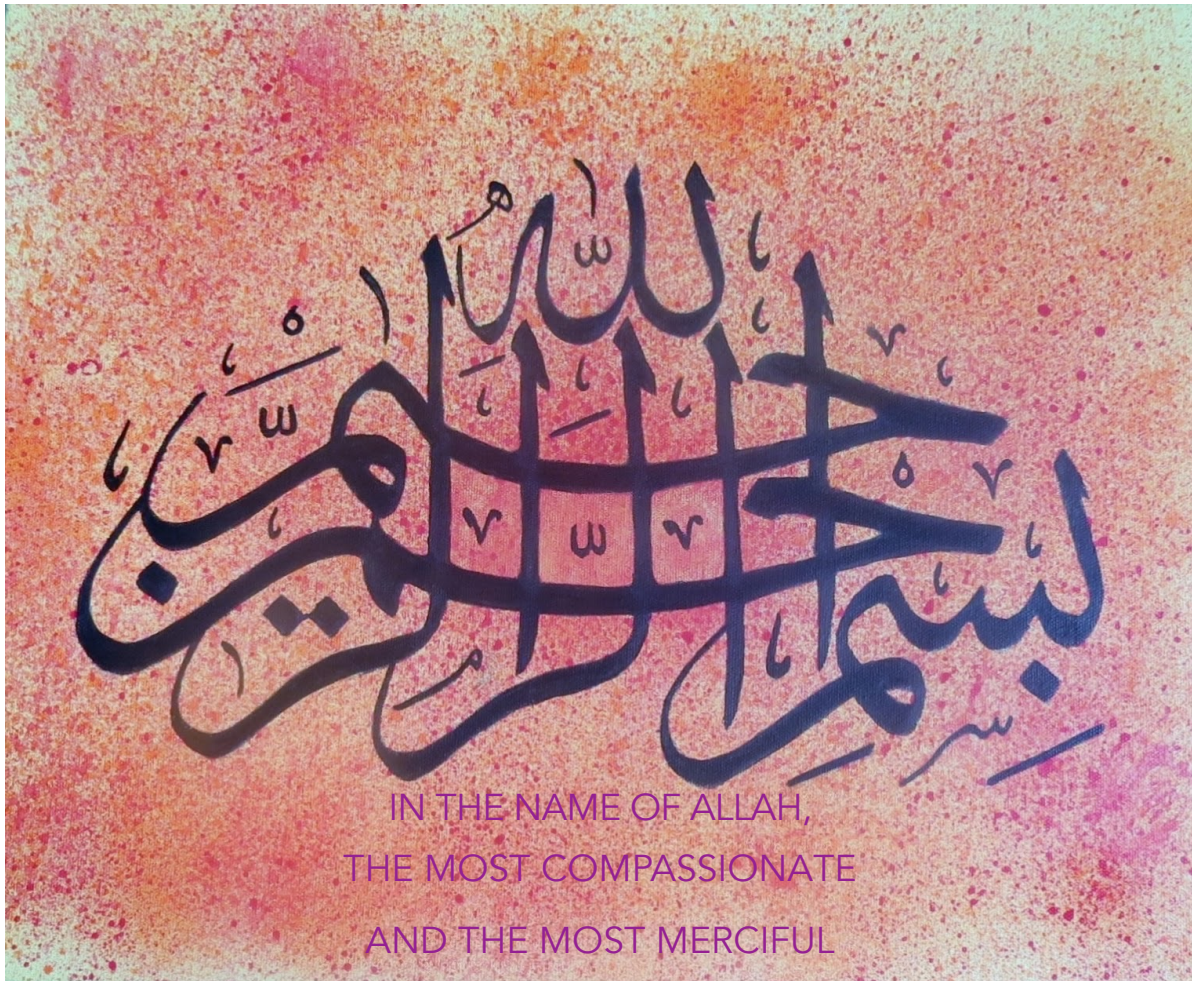 بِسْمِ اللهِ الرَّحْمٰنِ الرَّحِيمِ
IN THE NAME OF ALLAH,
THE MOST COMPASSIONATE
AND THE MOST MERCIFUL